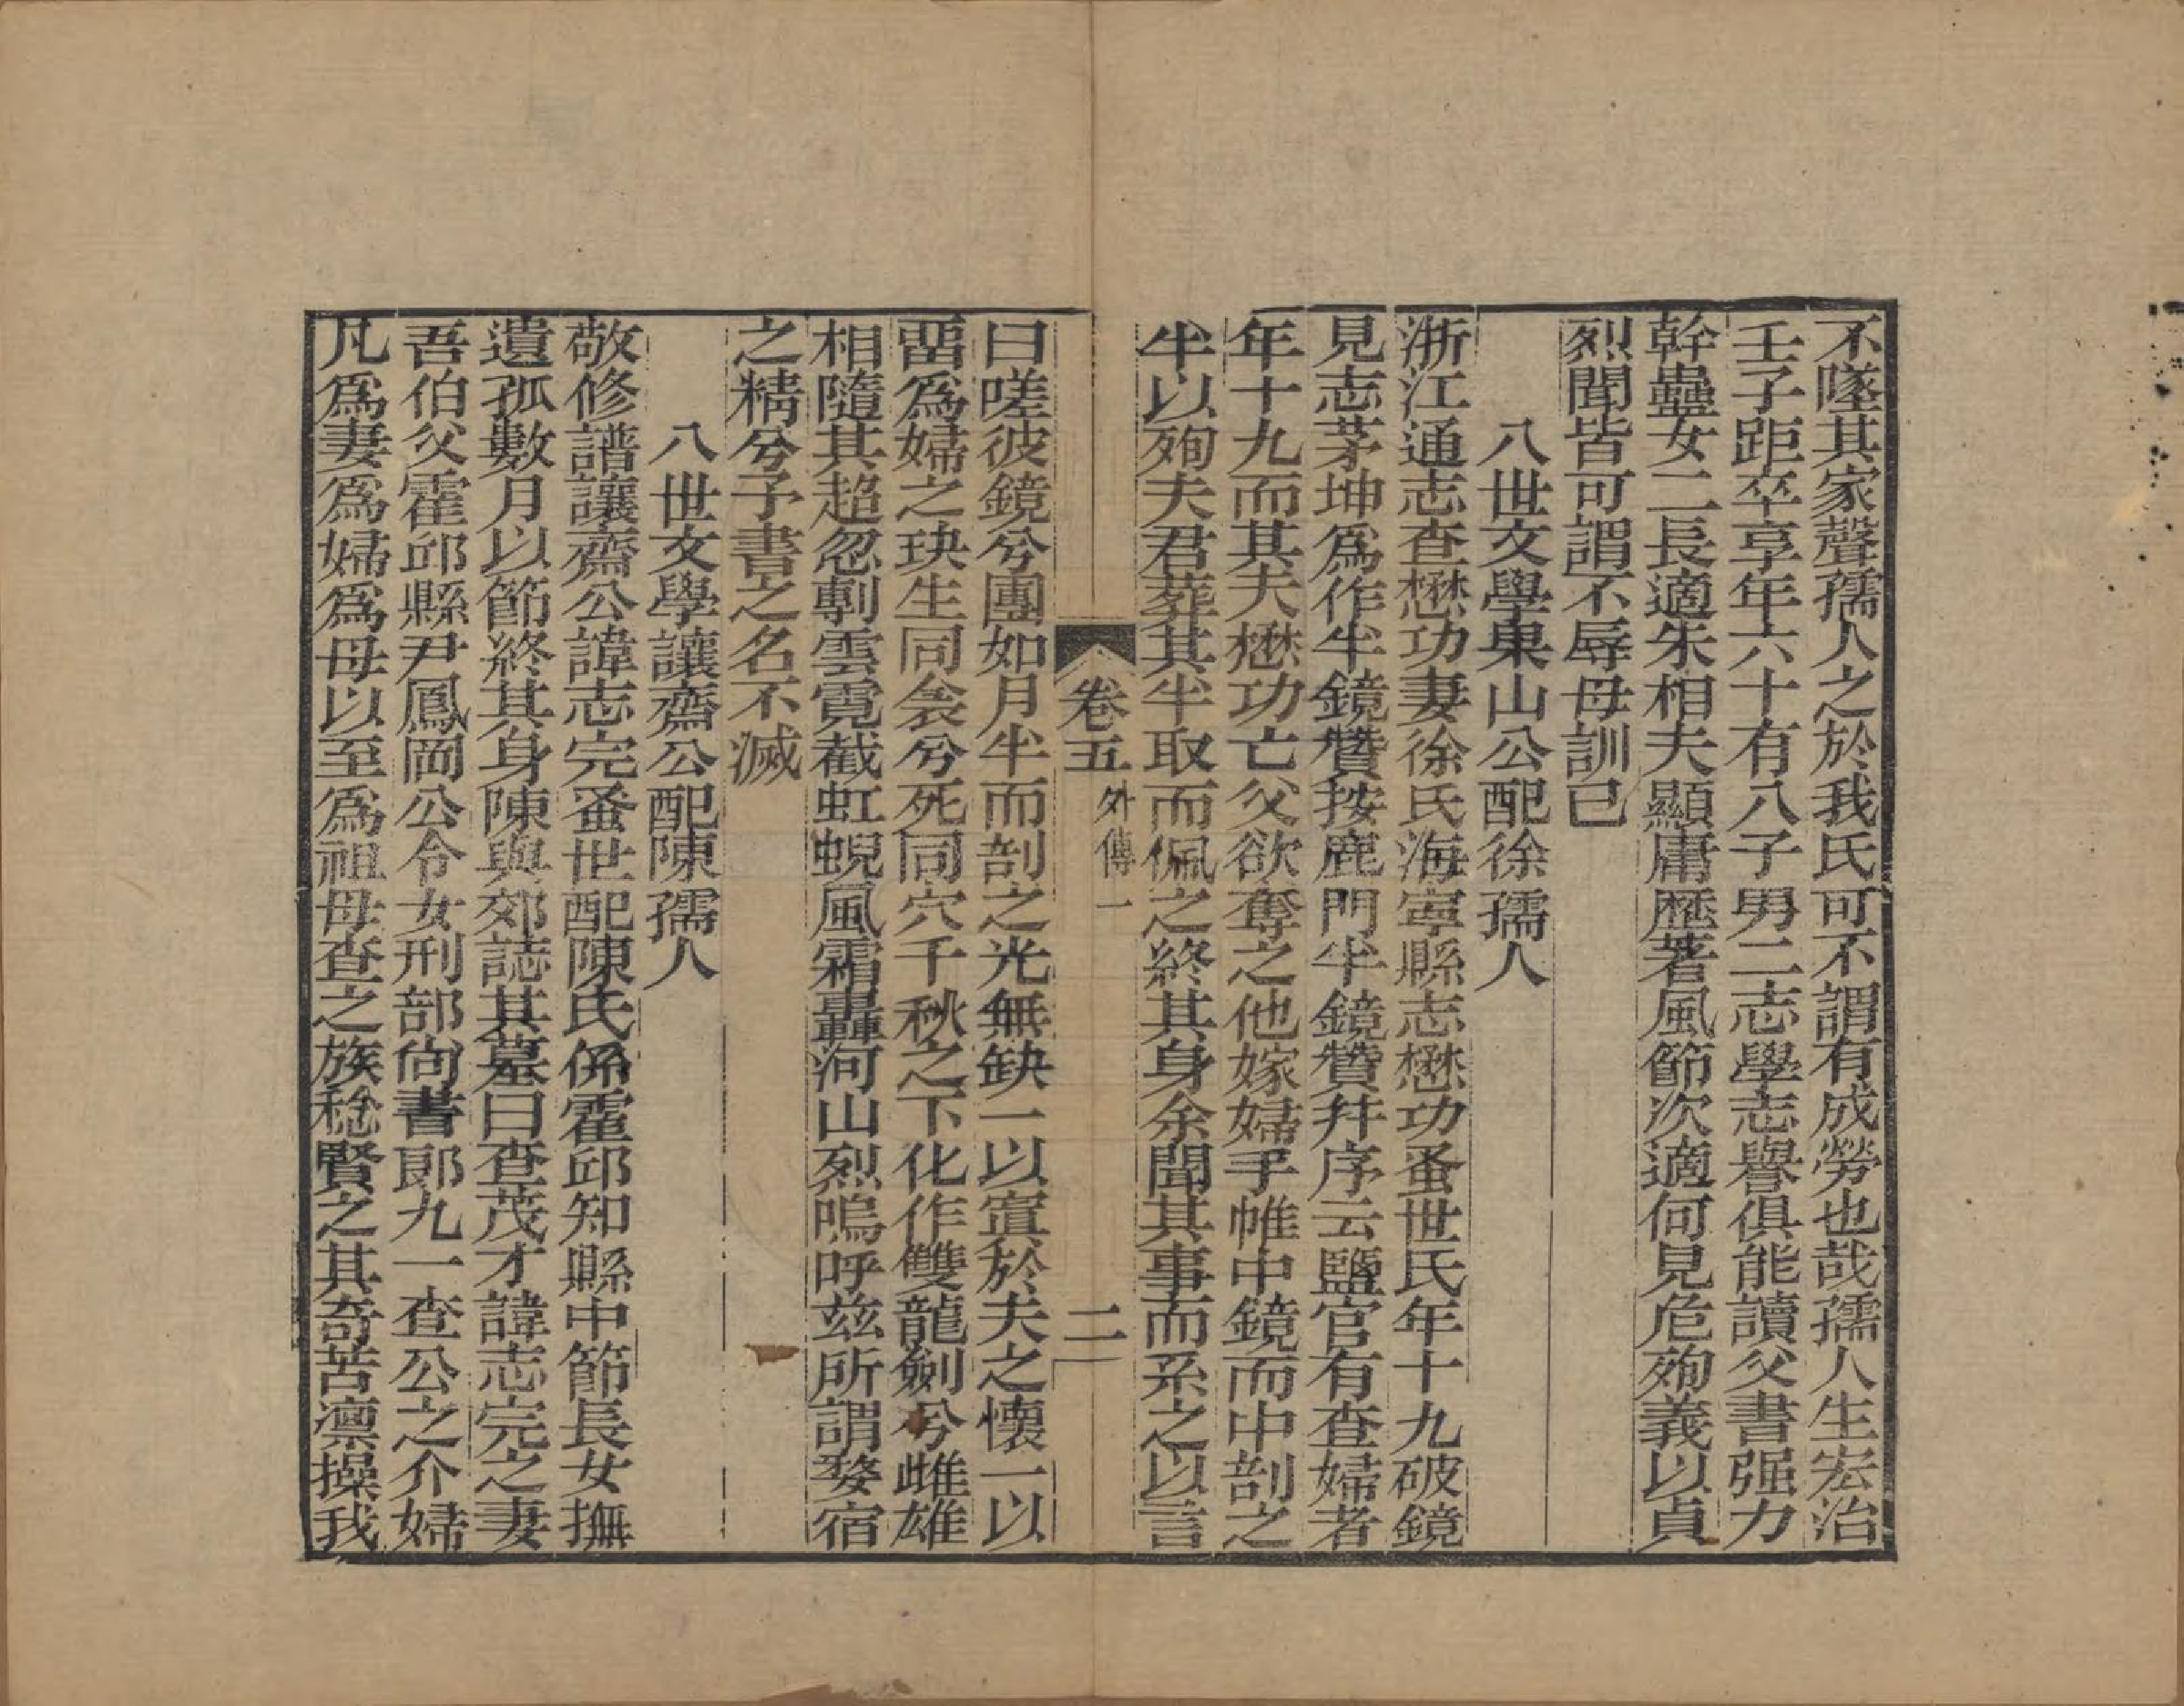 不墜其家聲孺人之於我氏可不謂有成勞也哉孺人生宏治
壬子距卒享年六十有八子男二志學志譽俱能讀父書强力
幹蠱女二長適朱相夫顯庸歷著風節次適何見危殉義以貞
烈聞皆可謂不辱母訓已
八世文學果山公配徐孺人
浙江通志查懋功妻徐氏海寧縣志懋功蚤世氏年十九破鏡
見志茅坤爲作半鏡贊按鹿門半鏡贊幷序云鹽官有查婦者
年十九而其夫懋功亡父欲奪之他嫁婦手帷中鏡而中剖之
半以殉夫君葬其半取而佩之終其身余聞其事而系之以言
卷五 外傳一 二
曰嗟彼鏡兮團如月半而剖之光無缺一以寘於夫之懷一以
畱爲婦之玦生同衾兮死同穴千秋之下化作雙龍劍兮雌雄
相隨其超忽剸雲霓截虹蜺風霜轟河山烈嗚呼茲所謂婺宿
之精兮予書之名不滅
八世文學讓齋公配陳孺人
敬修譜讓齋公諱志完蚤世配陳氏係霍邱知縣中節長女撫
遺孤數月以節終其身陳與郊誌其墓曰查茂才諱志完之妻
吾伯父霍邱縣尹鳳岡公令女刑部尙書郞九一查公之介婦
凡爲妻爲婦爲母以至爲祖母查之族稔賢之其奇苦凛操我